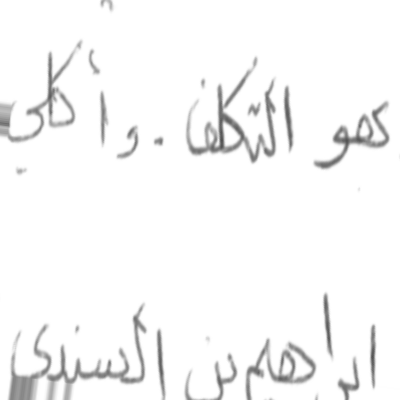 كهو التكلف . وأكلي
ابراهيم بن السندى